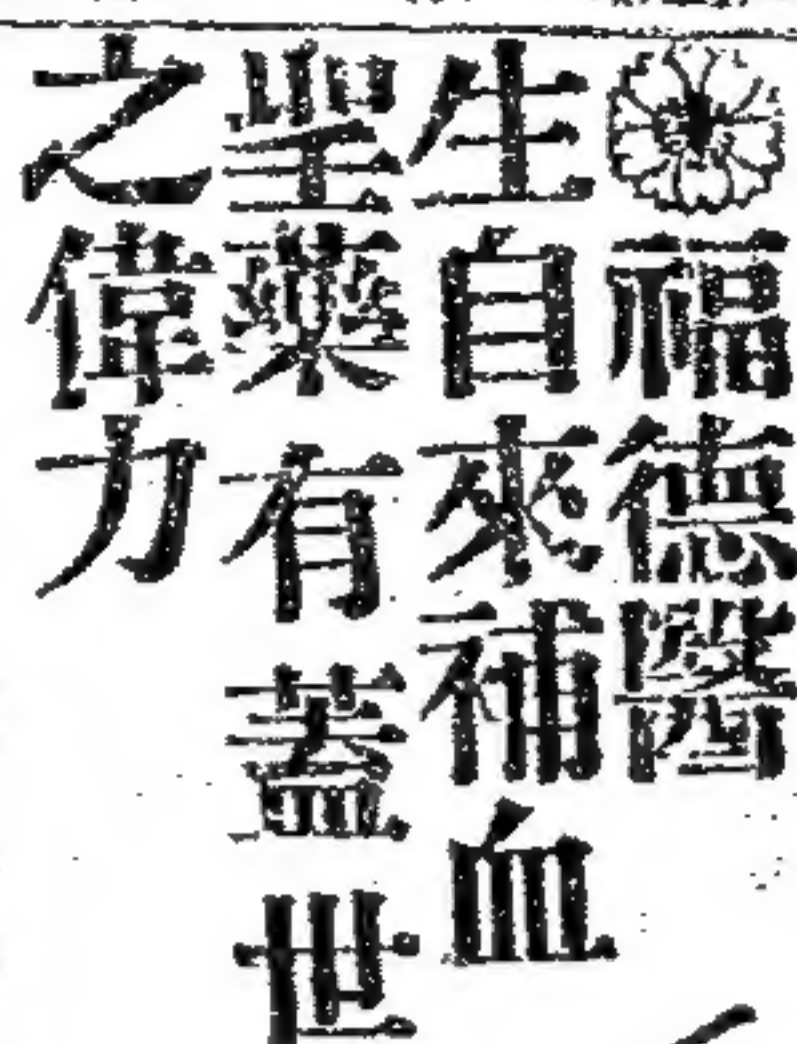 福德醫
生自來補血
聖藥有蓋世
之偉力